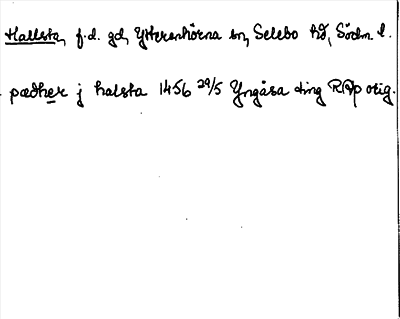 Hallsta, f.d. gd, Ytterenhörna sn, Selebo hd, Södm. l.
pædher j halsta 1456 29/5 Yngåsa ting RAp orig.